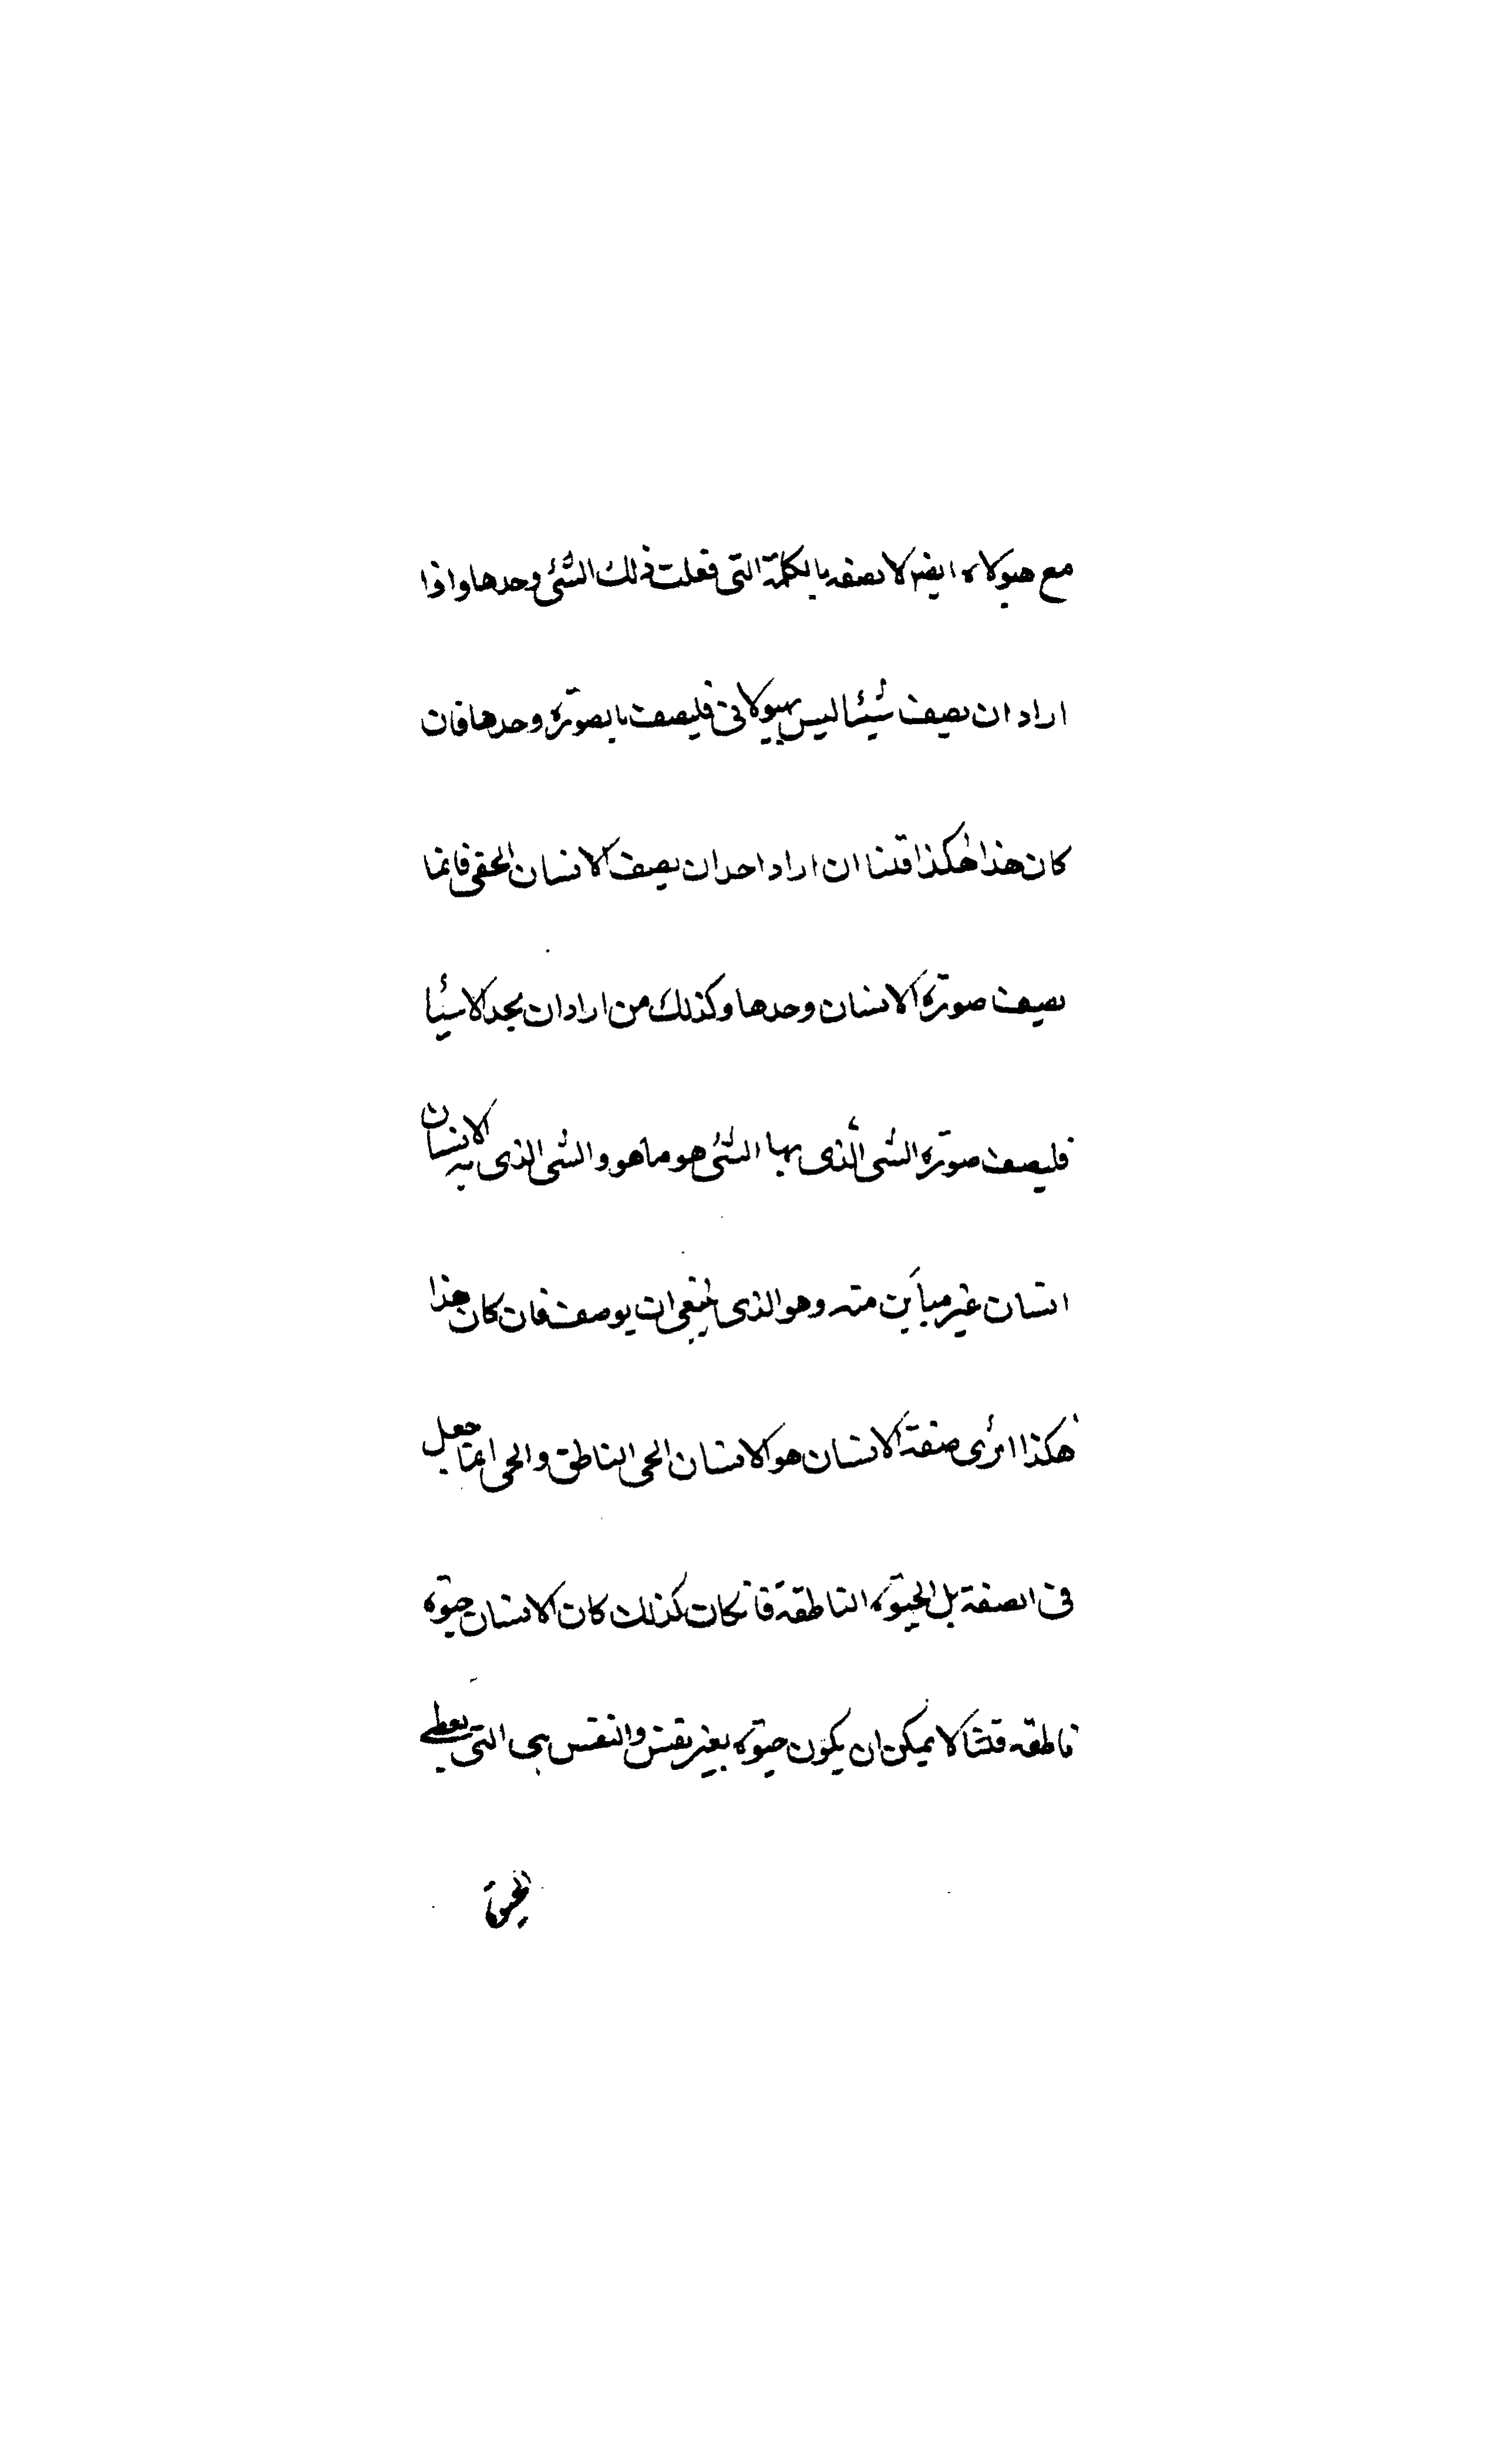 مع هيولاه ايضا لا يصفه بالكلمة التى فعلت ذلك الشئ وحدها واذا
اراد ان يصف شيئا ليس بهيولانى فليصف بالصورة وحدها فان
كان هذا هكذا قلنا ان اراد احد ان يصف الانسان الحقى فانما
يصف صورة الانسان وحدها وكذلك من اراد ان يحد الاشيا
فليصف صورة الشى الذى بها الشئ هو ما هو والشى الذى به الانسان
انسان غير مباين منه وهو الذى ينبغى ان يوصف فان كان هذا
هكذا اترى صفة الانسان هو الانسان الحى الناطق والحى انما جعل
فى الصفة بل الحيوة الناطقة فانكان كذلك كان الانسان حيوة
ناطقه قلنا لا يمكن ان يكون حيوة بغير نفس والنفس هى التى يعطى
الحيوة